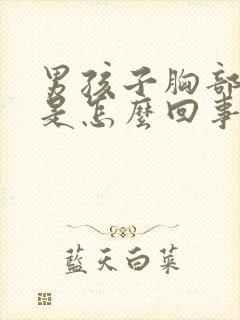 男孩子胸部
是怎麼回事
藍天白菜